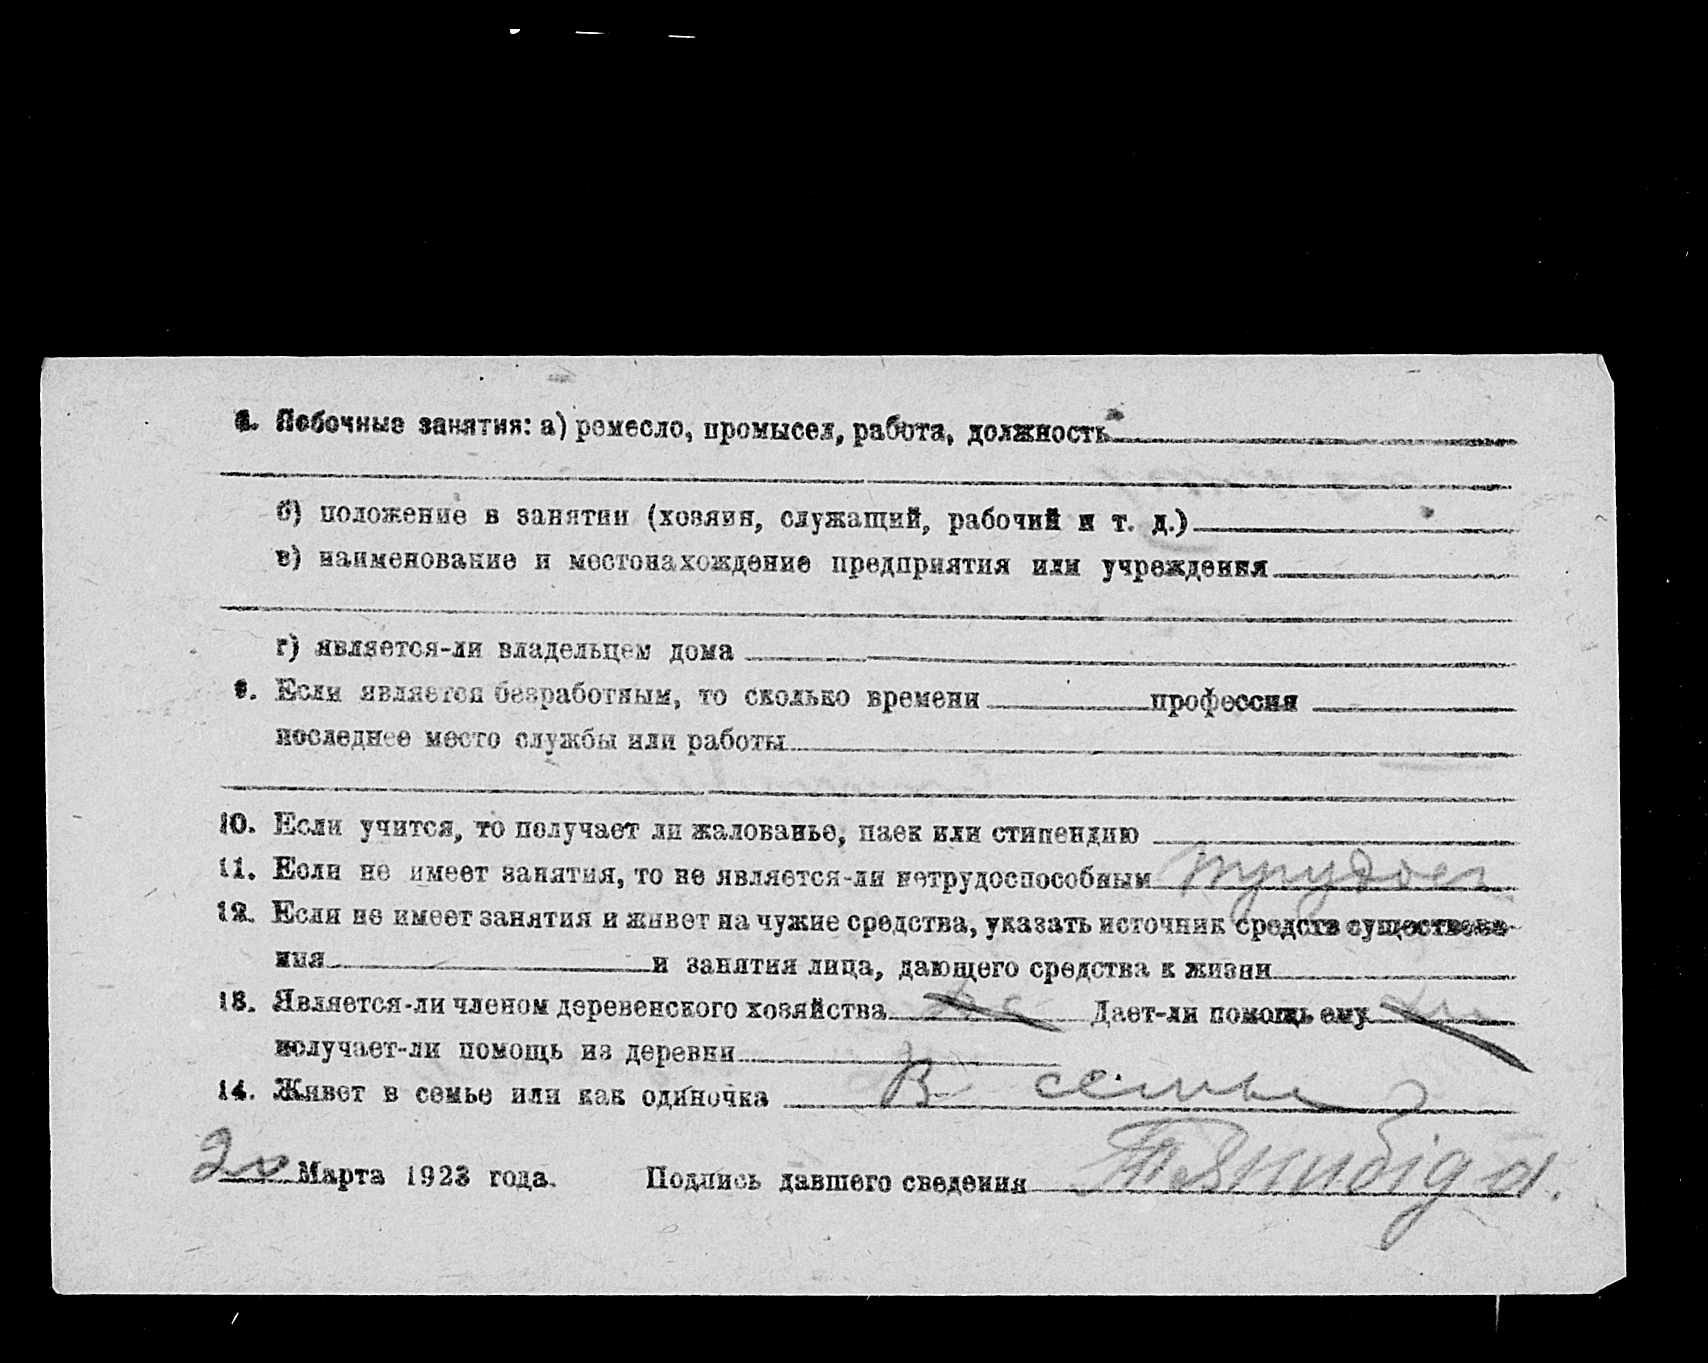 8. Побочные занятия: а) ремесло, промысел, работа, должность
б) положение в занятии (хозяин, служащий, рабочий и т. д.)
в) наименование и местонахождение предприятия или учреждения
г) является-ли владельцем дома
9. Если является безработным, то сколько времени профессия
последнее место службы или работы
10. Если учится, то получает ли жалованье, паек или стипендию
11. Если не имеет занятия, то не является-ли нетрудоспособным трудосп
12. Если не имеет занятия и живет на чужие средства, указать источник средств существова-
ния и занятия лица, дающего средства к жизни
13. Является-ли членом деревенского хозяйства Дает-ли помощь ему
получает-ли помощь из деревни
14. Живет в семье или как одиночка В семье
20 Марта 1923 года. Подпись давшего сведения